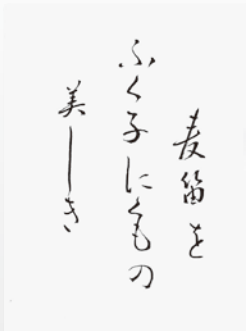 麦笛を
ふく子にくもの
美しき